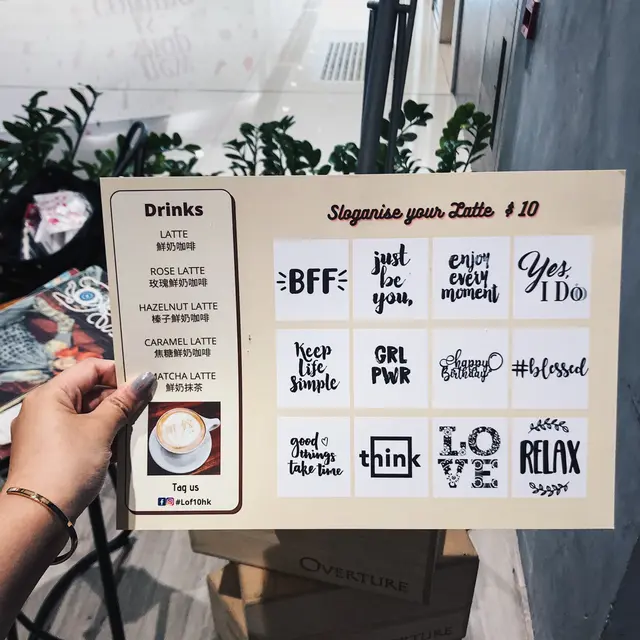 Drinks
LATTE
鮮奶咖啡
ROSE LATTE
玫瑰鮮奶咖啡
HAZELNUT LATTE
榛子鮮奶咖啡
CARAMEL LATTE
焦糖鮮奶咖啡
MATCHA LATTE
鮮奶抹茶
Tag us
#Lof10hk
Sloganise your Latte $10
BFF
just
be
you,
enjoy
every
moment
Yes,
I DO
Keep
life
simple
GRL
PWR
happy
Birthday
#blessed
good
things
take time
think
LO
VE
RELAX
OVERTURE
OVERTURE